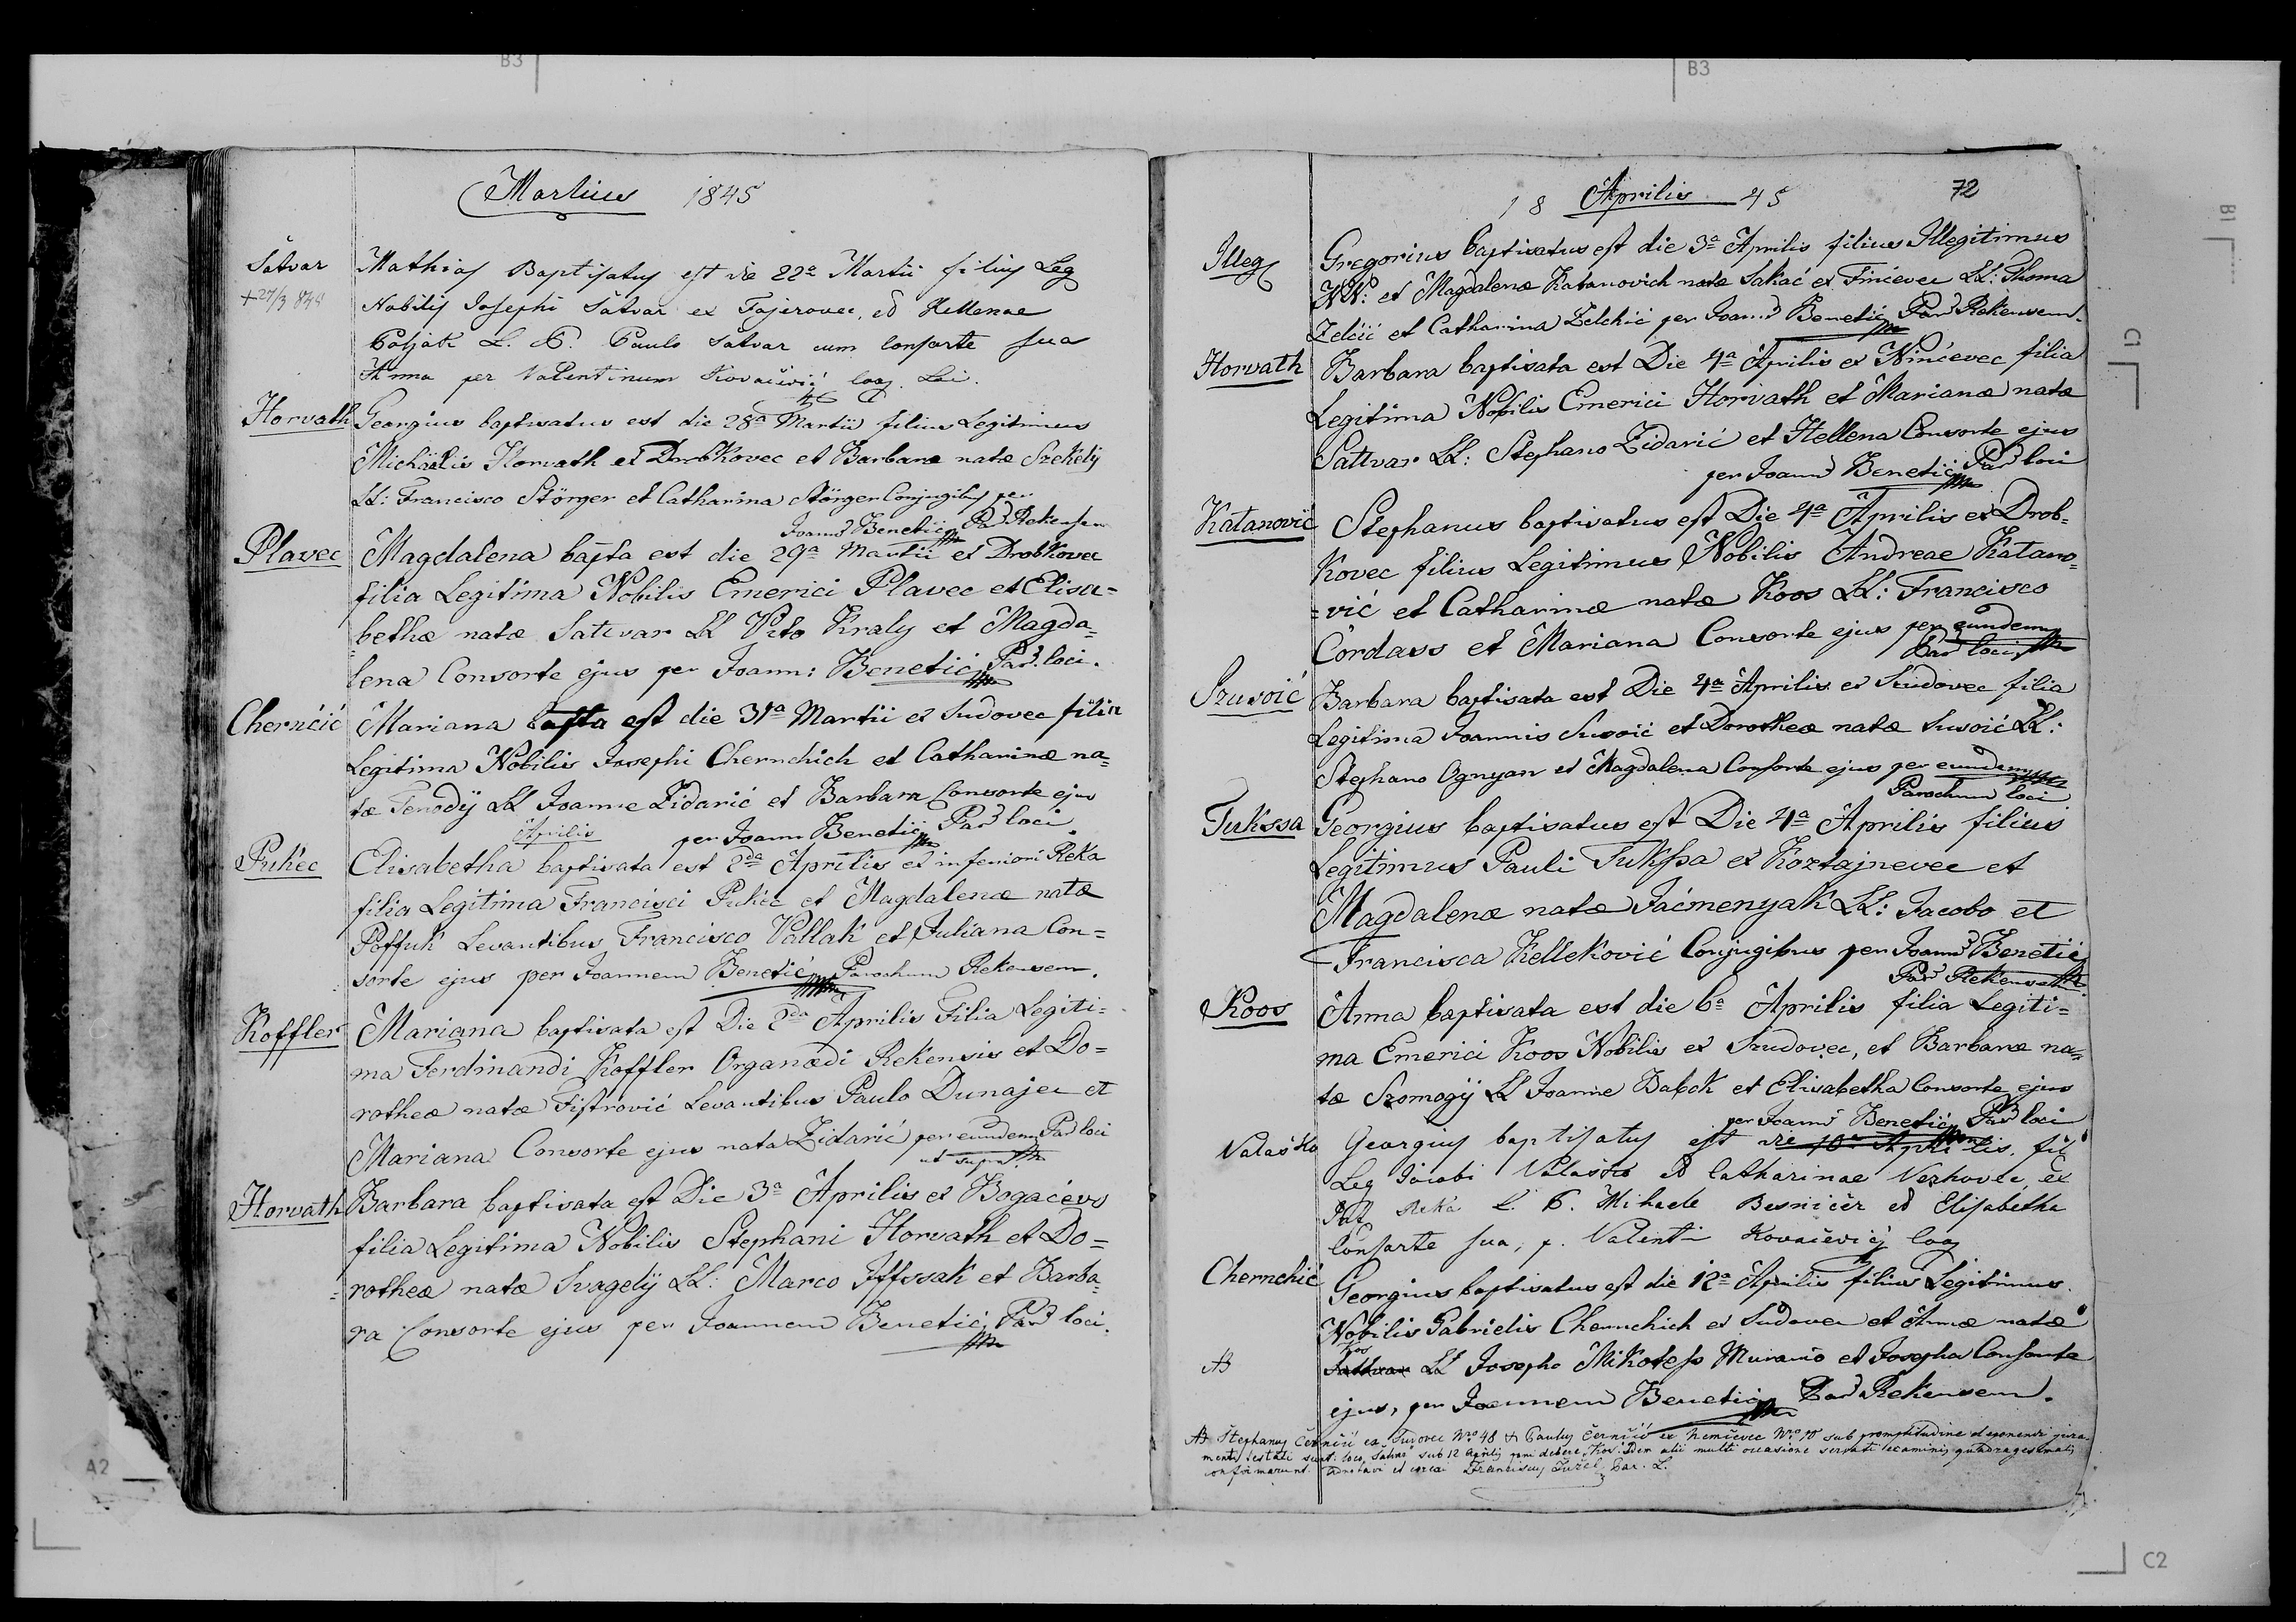 B3
B3
B1
C1
A2
C2
Martius 1845
Šatvar
Mathias Baptisatus est die 22a Martii filius Leg
+27/3 848
Nobilis Josephi Šatvar ex Fajerovec, et Hellenae
Poljak L. B. Paulo Šatvar cum Consorte sua
Anna per Valentinum Kovačević Coop. Loci.
Horvath
Georgius baptisatus est die 28a Martii filius Legitimus
Michaelis Horvath ex Drobkovec et Barbaræ natæ Szekely
LL: Francisco Störger et Catharina Störger Conjugibus per
Joann: Benetić Par. Rekensem
Plavec
Magdalena bapta est die 29a Martii ex Drobkovec
filia Legitima Nobilis Emerici Plavec et Elisa=
bethæ natæ Sattvar LL Vito Kraly et Magda=
lena Consorte ejus per Joann: Benetić Par. loci.
Chernčić
Mariana bapta est die 31a Martii ex Sudovec filia
Legitima Nobilis Josephi Chernchich et Catharinæ na=
tæ Terrodÿ LL Joanne Zidarić et Barbara Consorte ejus
per Joann Benetić Par loci
Aprilis
Pukec
Elisabetha baptisata est 2da Aprilis ex inferiori Reka
filia Legitima Francisci Pukec et Magdalenæ natæ
Poffuk Levantibus Francisco Vallak et Juliana Con=
sorte ejus per Joannem Benetić Parochum Rekensem.
Koffler
Mariana baptisata est Die 2da Aprilis Filia Legiti=
ma Ferdinandi Koffler Organædi Rekensis et Do=
rotheæ natæ Fistrović Levantibus Paulo Dunajec et
Mariana Consorte ejus nata Zidarić per eundem Par loci
ut supra
Horvath
Barbara baptisata est Die 3a Aprilis ex Bogačevo
filia Legitima Nobilis Stephani Horvath et Do=
=rotheæ natæ Svagelÿ LL: Marco Iffssak et Barba=
ra Consorte ejus per Joannem Benetić Par loci.
18 Aprilis 45
72
Illeg
Gregorius baptisatus est die 3a Aprilis filius Illegitimus
NN: et Magdalenæ Katanovich natæ Sakać ex Finčevec LL: Thoma
Zelčić et Catharina Zelchić per Joann Benetić Par Rekensem.
Horvath
Barbara baptisata est Die 4a Aprilis ex Ninčevec filia
Legitima Nobilis Emerici Horvath et Marianæ natæ
Sattvar LL: Stephano Zidarić et Hellena Consorte ejus
per Joann Benetić Par loci
Katanović
Stephanus baptisatus est Die 4a Aprilis ex Drob=
kovec filius Legitimus Nobilis Andreae Katano=
=vić et Catharinæ natæ Koos LL: Francisco
Čordass et Mariana Consorte ejus per eundem
Par loci
Szusoić
Barbara baptisata est Die 4a Aprilis ex Sudovec filia
Legitima Joannis Susoić et Dorotheæ natæ Susoić LL:
Stephano Ognyan et Magdalena Consorte ejus per eundem
Parochum loci
Tukssa
Georgius baptisatus est Die 4a Aprilis filius
Legitimus Pauli Tukssa ex Koztajnevec et
Magdalenæ natæ Jačmenyak LL: Jacobo et
Francisca Kelleković Conjugibus per Joann Benetić
Par Rekensem
Koos
Anna baptisata est die 6a Aprilis filia Legiti=
ma Emerici Koos Nobilis ex Szudovec, et Barbaræ na=
tæ Szomogÿ LL Joanne Babok et Elisabetha Consorte ejus
per Joann Benetić Par loci
Valaško
Georgius baptisatus est die 10a Aprilis. fil
Leg Jacobi Valaško et Catharinae Verhovec, ex
Reka L. B. Michaele Besničer et Elisabetha
Consorte sua, p. Valentin Kovačević Coop
Chernchić
Georgius baptisatus est die 12a Aprilis filius Legitimus
Nobilis Gabrielis Chernchich ex Sudovec et Annæ natæ
Kos
NB
Sathvar LL Josepho Mikotess Murario et Josepha Consorte
ejus, per Joannem Benetić Par Rekensem.
NB Stephanus Černčić ex Sudovec Nro 48 & Paulus Černčić ex Nemčevec Nro 10 sub promptitudine deponendi jura
menti testati sunt: loco „Šatvar“ sub 12 Aprilis poni debere „Kos“. Idem alii multi occasione servati examinis quadragesimalis
confirmarunt. Adnotavi et correxi Franciscus Tužel Par. L.